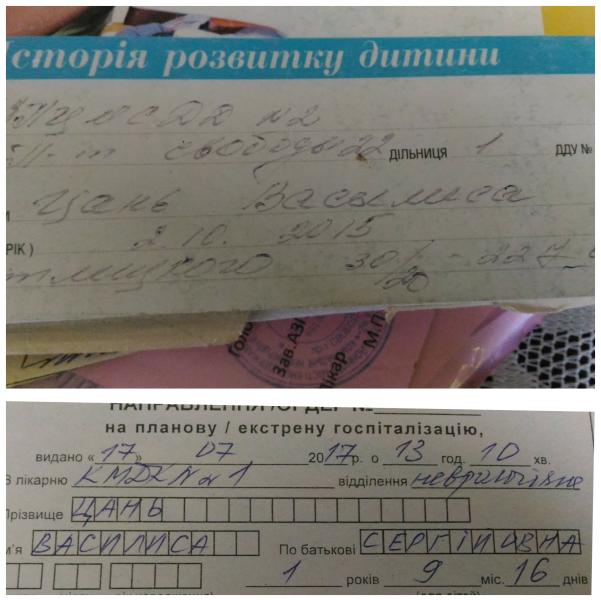 Історія розвитку дитини
ЦМСДД №2
П-т свободы 22 ДІЛЬНИЦЯ 1 ДДУ №
Цань Васылиса
РІК ) 2. 10. 2015
30/20 - 227
Зав.
лікар М.П.
НАПРАВЛЕННЯ /ОРДЕР №
на планову / екстрену госпіталізацію,
видано « 17 » 07 2017р. о 13 год. 10 хв.
В лікарню КМДКЛ №1 відділення
Прізвище ЦАНЬ
м'я ВАСИЛИСА По батькові СЕРГІЙОВНА
1 років 9 міс. 16 днів